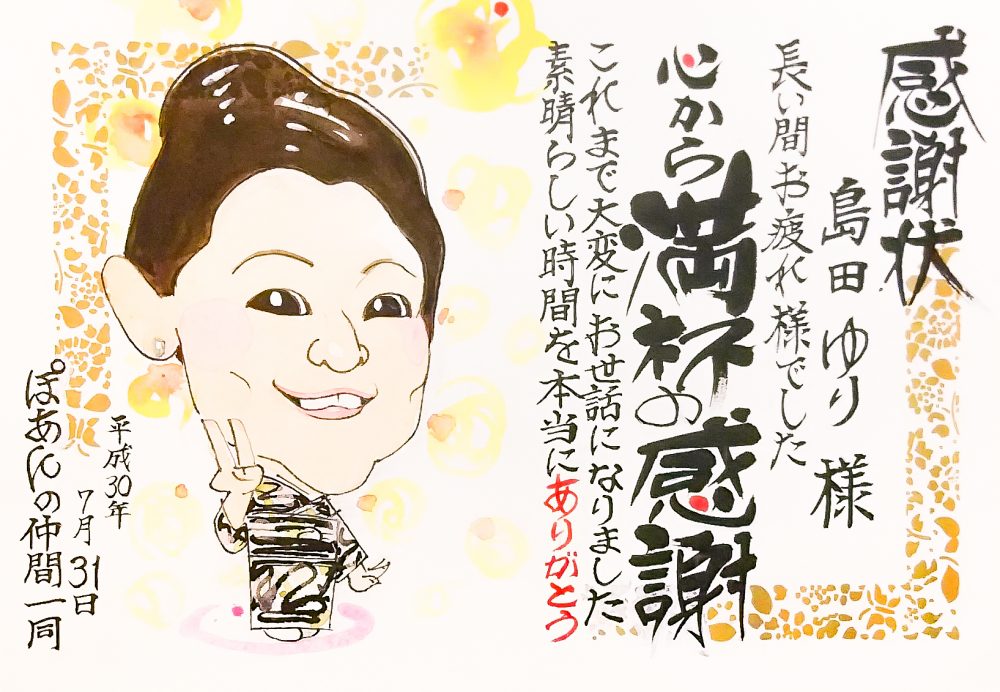 感謝状
島田 ゆり 様
長い間お疲れ様でした
心から満杯の感謝
これまで大変にお世話になりました
素晴らしい時間を本当にありがとう
平成30年
7月31日
ぽあんの仲間一同